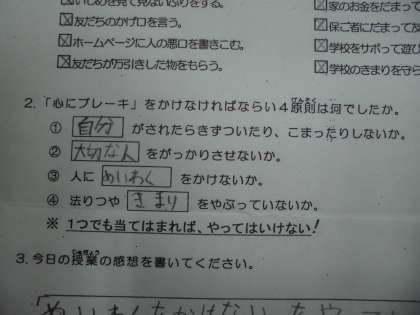 いじめを見て見ないふりをする。
家のお金をだまって
友だちのかげ口を言う。
保ご者にだまって友
ホームページに人の悪口を書きこむ。
学校をサボって遊び
友だちが万引きした物をもらう。
学校のきまりを守ら
2.「心にブレーキ」をかけなければならい4原則は何でしたか。
① 自分 がされたらきずついたり、こまったりしないか。
② 大切な人 をがっかりさせないか。
③ 人に めいわく をかけないか。
④ 法りつや きまり をやぶっていないか。
※ 1つでも当てはまれば、やってはいけない!
3.今日の授業の感想を書いてください。
めいわくをかけない